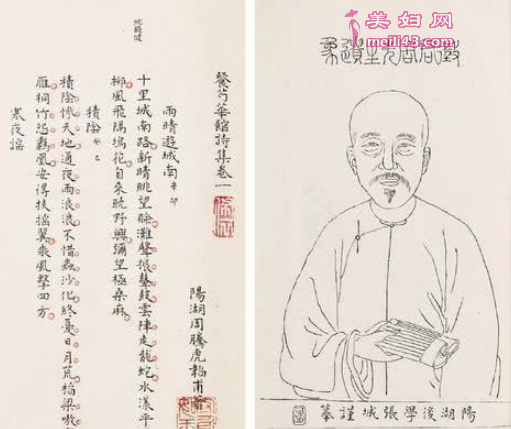 餐芍華館詩集卷一
陽湖周騰虎韜甫
雨晴遊城南 辛卯
十里城南路新晴眺望賒灘聲振鼙鼓雲陣走龍蛇水漾平
柳風飛隔塢花自來耽野興彌望極桑麻
積陰 癸巳
積陰慘天地通夜雨浪浪不惜蟲沙化終憂日月荒稻粱嗷
雁桐竹怨鸞凰安得扶搖翼乘風擊四方
寒夜謠
美妇网
meili43.com
陽湖後學張城謹摹